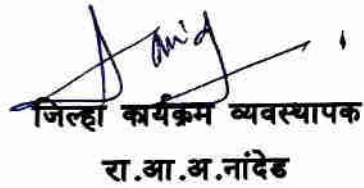 जिल्हा कार्यक्रम व्यवस्थापक
रा.आ.अ.नांदेड